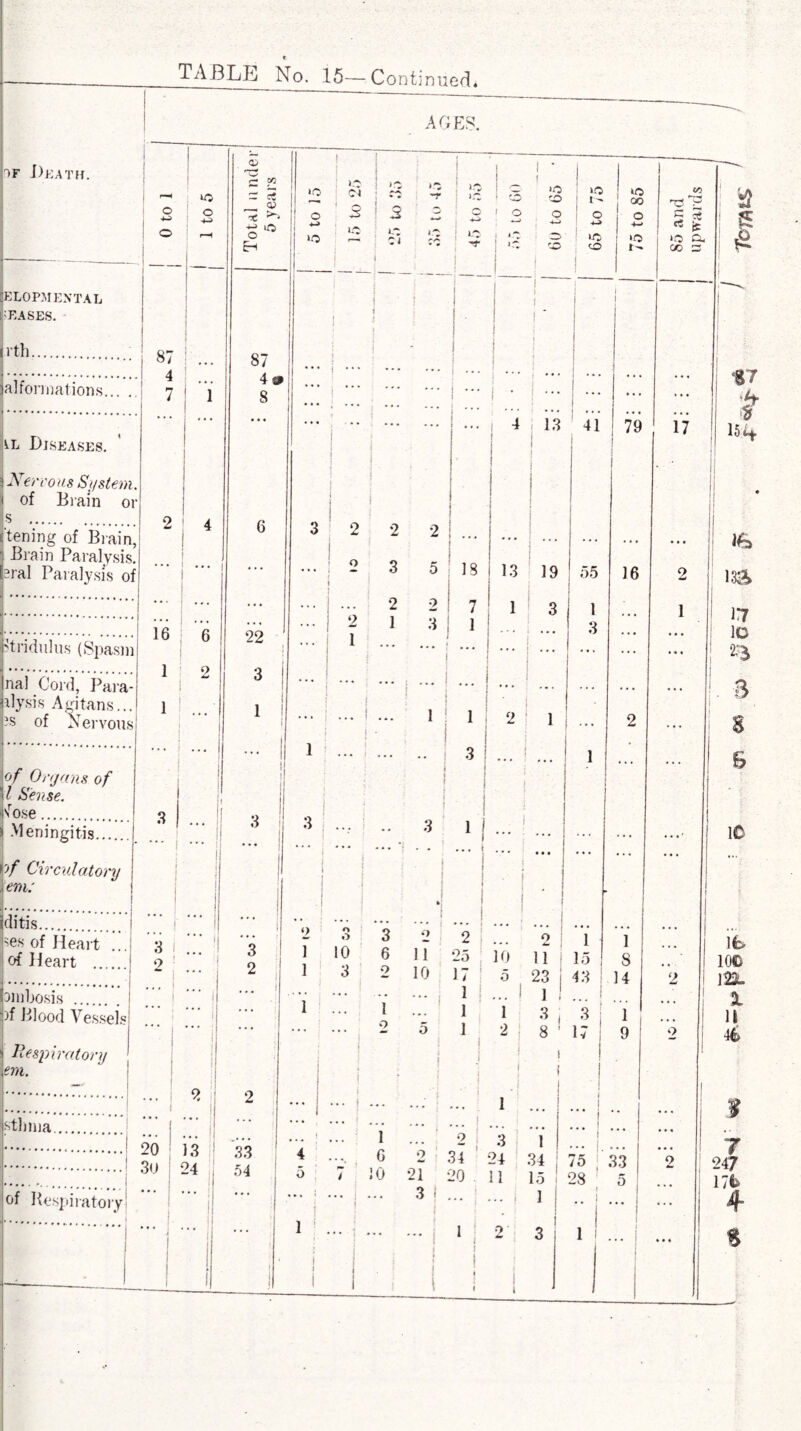 TABLE No. 15—Continued.
AGES.
OF DEATH.
0 to 1 | 1 to 5 | Total under 5 years | 5 to 15 | 15 to 25 | 25 to 35 | 35 to 45 | 45 to 55 | 55 to 60 | 60 to 65 | 65 to 75 | 75 to 85 | 85 and upwards | Totals
ELOPMENTAL
EASES.
rth 87 ... 87 ... ... ... ... ... ... ... ... ... ... 87
4 ... 4 ... ... ... ... ... ... ... ... ... ... 4
alformations 7 1 8 ... ... ... ... ... ... ... ... ... ... 8
... ... ... ... ... ... ... ... 4 13 41 79 17 154
AL DISEASES.
Nervous System.
of Brain or
s 2 4 6 3 2 2 2 ... ... ... ... ... ... 16
tening of Brain,
Brain Paralysis.
eral Paralysis of ... ... ... ... 2 3 5 18 13 19 55 16 2 133
... ... ... ... ... 2 2 7 1 3 1 ... 1 17
... ... ... ... 2 1 3 1 ... ... 3 ... ... 10
Stridulus (Spasm 16 6 22 ... 1 ... ... ... ... ... ... ... ... 23
1 2 3 ... ... ... ... ... ... ... ... ... ... 3
nal Cord, Para-
alysis Agitans... 1 ... 1 ... ... ... 1 1 2 1 ... 2 ... 8
es of Nervous
... ... ... 1 ... ... .. 3 ... ... 1 ... ...
of Organs of
l Sense.
Nose 3 ... 3 3 ... .. 3 1 ... ... ... ... ... 10
Meningitis
of Circulatory
em:
ditis ... ... ... 2 3 3 2 2 ... 2 1 1 ... 16
ses of Heart ... 3 ... 3 1 10 6 11 25 10 11 15 8 .. 100
of Heart 2 ... 2 1 3 2 10 17 5 23 43 14 2 122
ombosis ... ... ... ... ... .. ... 1 ... 1 ... ... ...
of Blood Vessels ... ... ... 1 ... 1 ... 1 1 3 3 1 ... 11
... ... 2 5 1 2 8 17 9 2 46
Respiratory
em.
... 2 2 ... ... ... ... ... 1 ... ... .. ... 3
sthma ... ... ... ... ... 1 ... 2 3 1 ... ... ... 7
20 13 33 4 ... 6 2 34 24 34 75 33 2 247
30 24 54 5 7 10 21 20 11 15 28 5 ... 176
of Respiratory ... ... ... ... ... ... 3 ... ... 1 .. ... ... 4
... ... ... 1 ... ... ... 1 2 3 1 ... ... 8